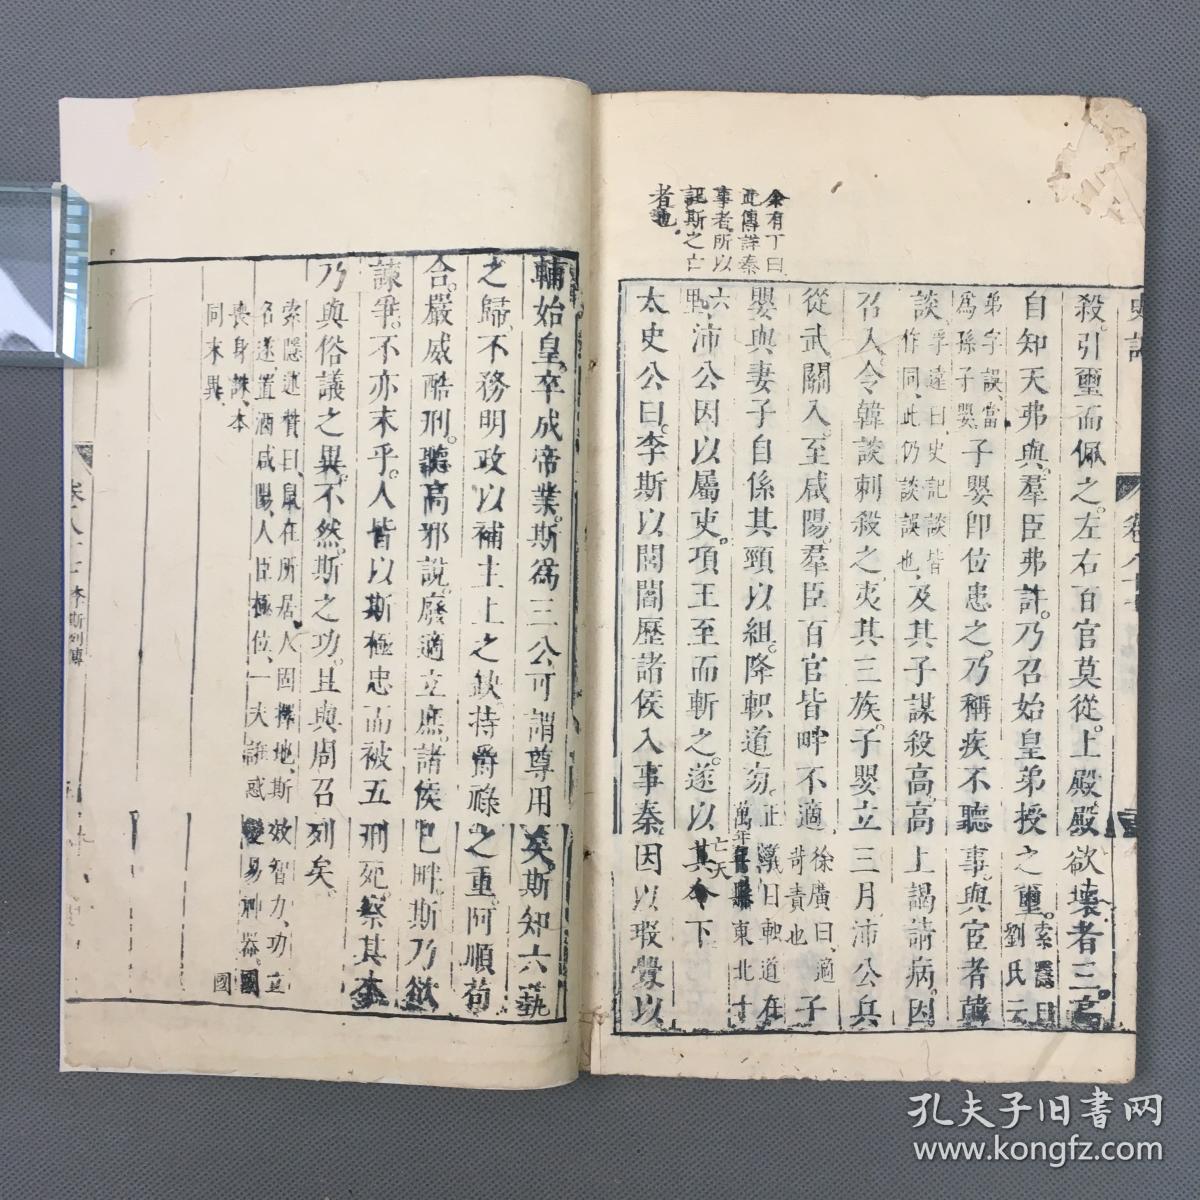 史記
卷八十七
殺引璽而佩之左右百官莫從上殿殿欲壞者三高
自知天弗與羣臣弗許乃召始皇弟授之璽索隱曰劉氏云
弟字誤當爲孫子嬰子嬰卽位患之乃稱疾不聽事與宦者韓
談徐廣曰史記談皆作同此仍談誤也及其子謀殺高高上謁請病因
召入令韓談刺殺之夷其三族子嬰立三月沛公兵
從武關入至咸陽羣臣百官皆畔不適徐廣曰適苛責也子
嬰與妻子自係其頸以組降軹道旁正義曰軹道在萬年縣東北十
六里沛公因以屬吏項王至而斬之遂以亡天下
太史公曰李斯以閭閻歷諸侯入事秦因以瑕釁以
余有丁曰
此傳詳秦
事者所以
記斯之亡
者也
輔始皇卒成帝業斯爲三公可謂尊用矣斯知六藝
之歸不務明政以補主上之缺持爵祿之重阿順苟
合嚴威酷刑聽高邪說廢適立庶諸侯已畔斯乃欲
諫爭不亦末乎人皆以斯極忠而被五刑死察其本
乃與俗議之異不然斯之功且與周召列矣
索隱述贊曰鼠在所居人固擇地斯效智力功立
名遂置酒咸陽人臣極位一夫誑惑變易神器國
喪身誅本
同末異
卷八十七 李斯列傳
孔夫子旧书网
www.kongfz.com